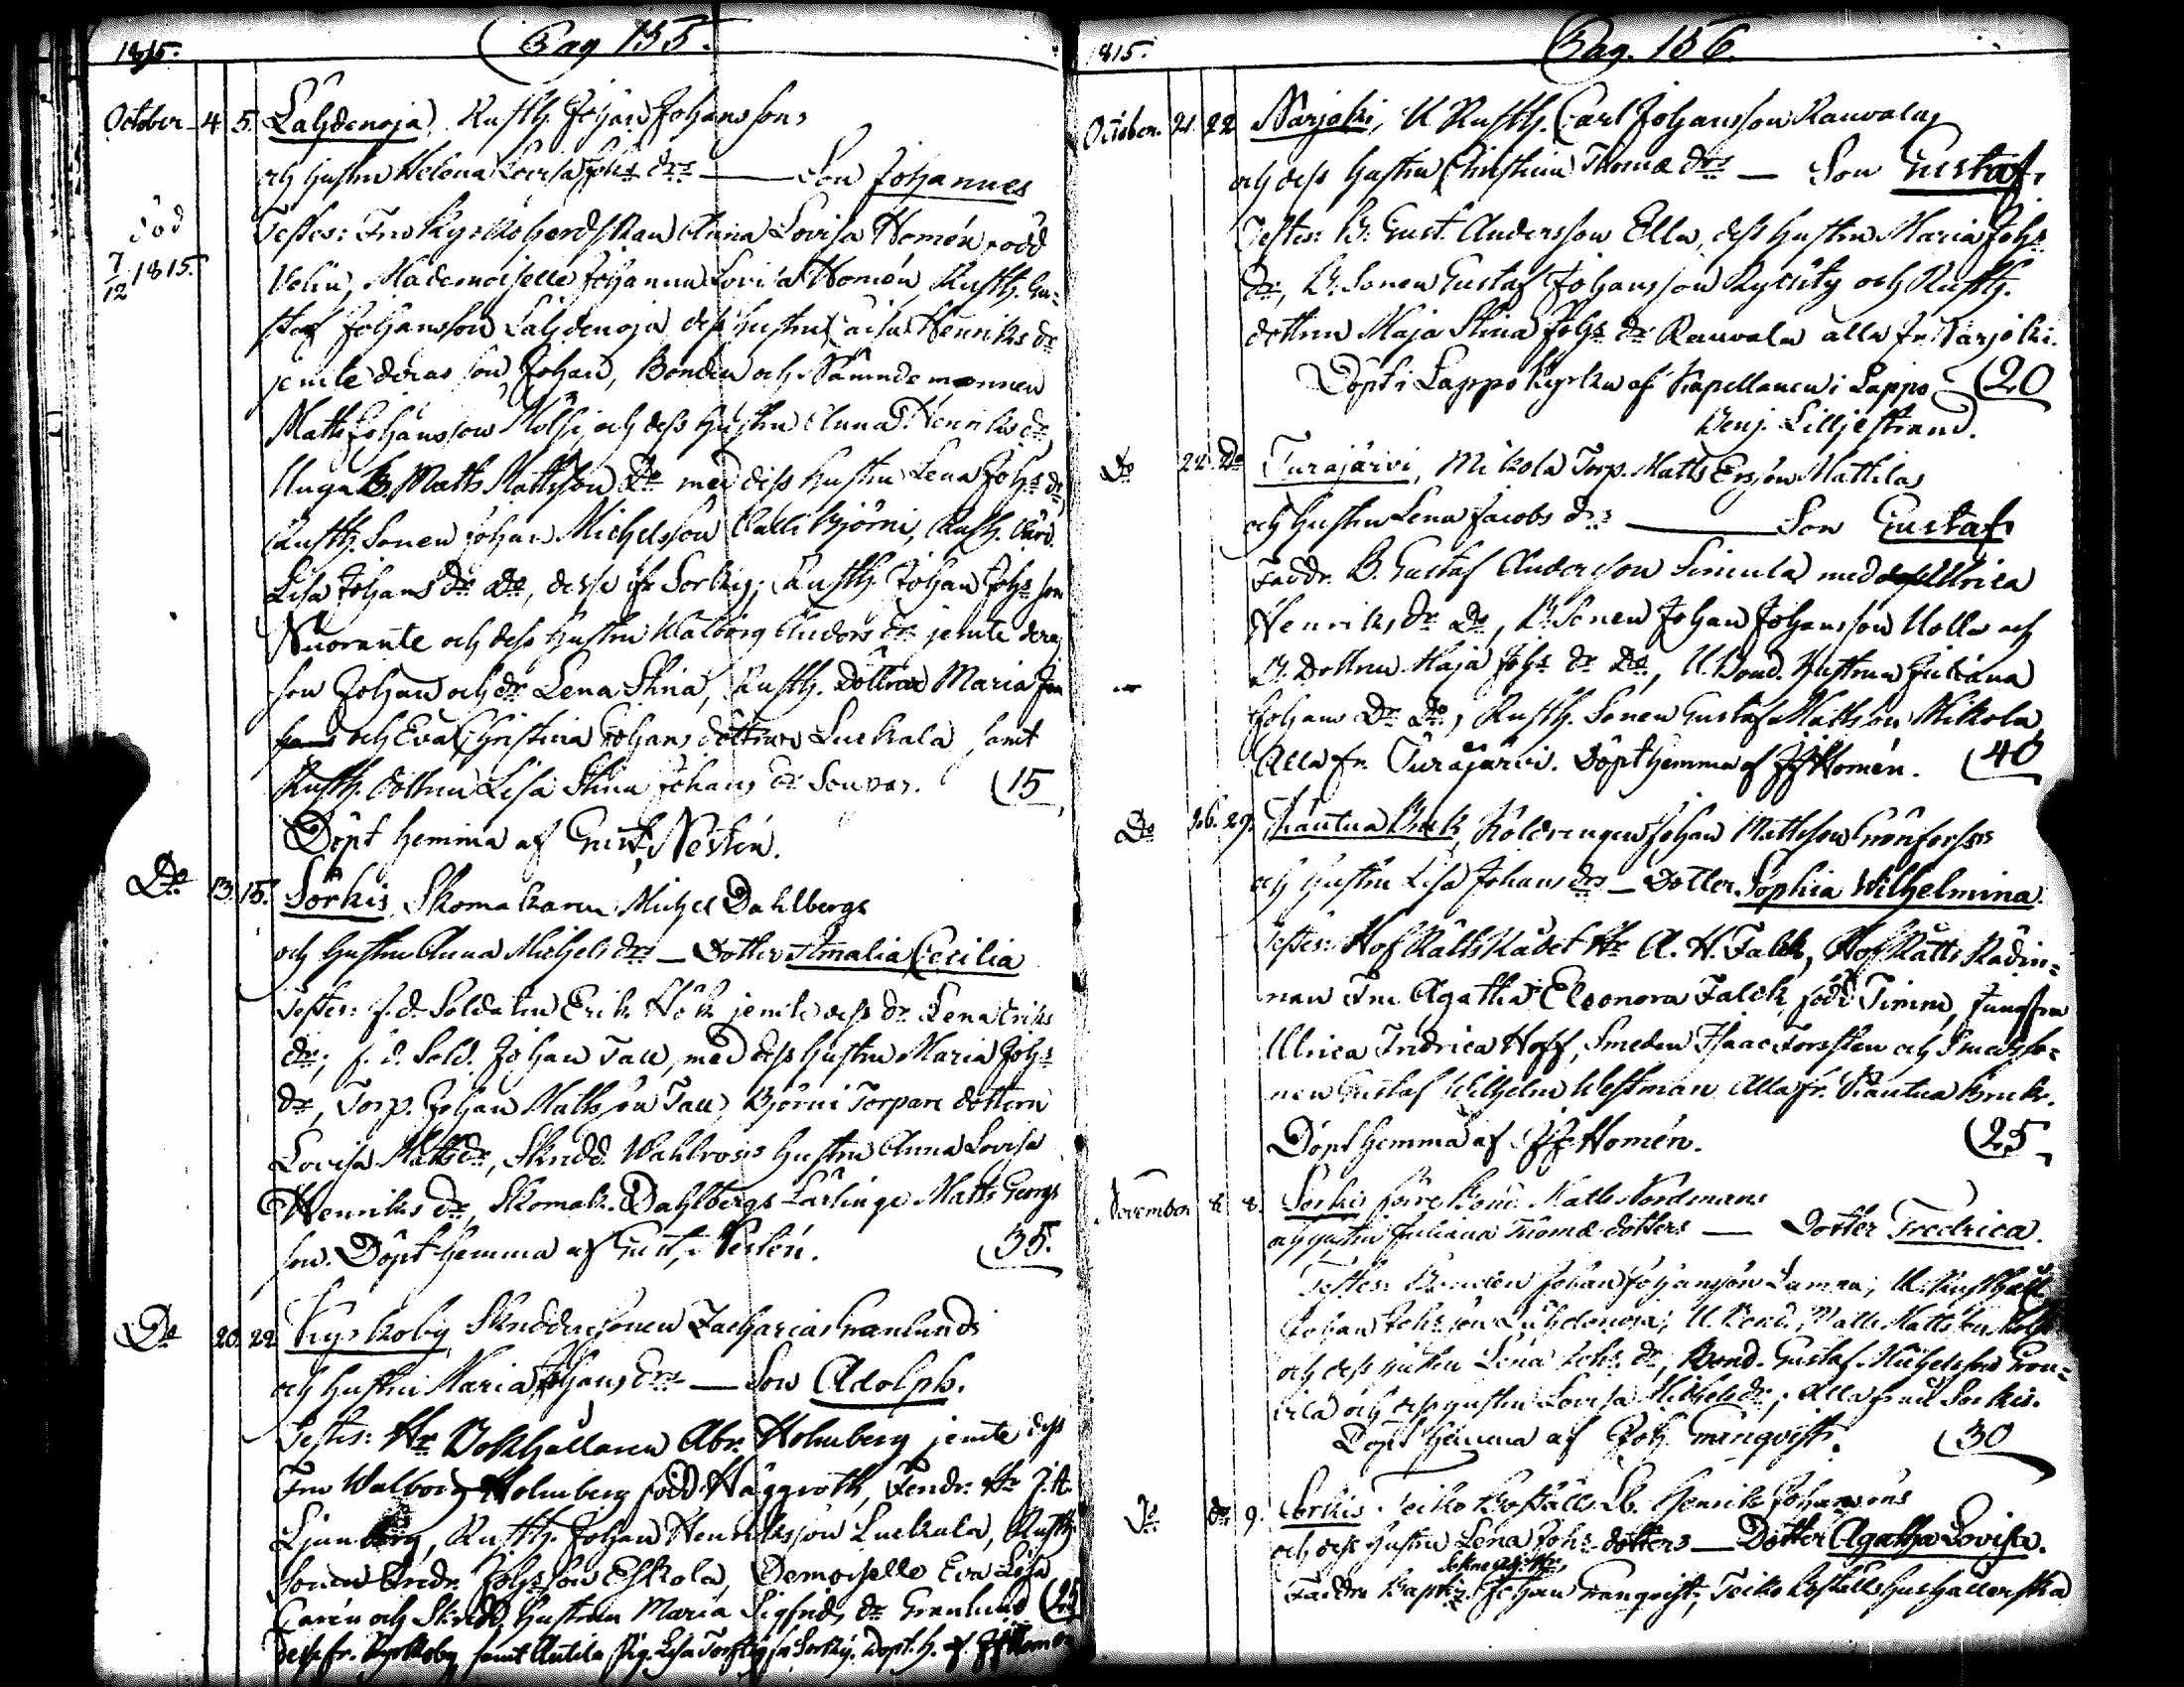 1815. Pag 155.
October 4. 5. Lahdenoja, Rusth. Johan Johanssons
och hustru Helena Lovisa Johs drs — Son Johannes
död 7/12 1815.
Testes: Fru Kyrkoherdskan Anna Lovisa Homén född
Mademoiselle Johanna Lovisa Homén, Rusth. Gu-
staf Johansson Lahdenoja dess hustru Caisa Henriks dr
jemte deras son Johan, Bonden och Nämndemannen
Matts Johansson och dess hustru Anna Henriks dr
Unga B. Matts Mattsson Do med dess hustru Lena Johs dr
Rusth. Sonen Johan Michelsson Björni, Rusth.
Lisa Johans dr Do, desse ifr Sorkis; Rusth. Johan Johs son
Nuorante och dess hustru Walborg Anders dr jemte deras
son Johan och dr Lena Stina, Rusth. döttrar Maria
och Eva Christina Johans döttrar Luckala samt
Rusth. dottren Lisa Stina Johans dr Souvar. 15
Döpt hemma af Gust. Nestén.
Do 13. 15. Sorkis Skomakaren Michel Dahlbergs
och hustru Anna Michels drs — Dotter Amalia Cecilia
Testes: f.d. Soldaten Erik Hök jemte dess dr Lena Eriks
dr; f.d. Sold. Johan Tall, med dess hustru Maria Johs
dr, Torp. Johan Mattsson Tall, Björni Torpare dottern
Lovisa Matts dr, Skrädd. Wahlroos hustru Anna Lovisa
Henriks dr, Skomak. Dahlbergs Lärlinge Matts Georgs
son. Döpt hemma af Gust. Nestén. 35.
Do 20. 22 Kyrkoby Skräddaresonen Zacharias Granlunds
och hustru Maria Johans drs — Son Adolph.
Testes: Hr Bokhållaren Abr. Holmberg jemte dess
Fru Walborg Holmberg född Häggroth, Fendr. Hr J. A.
Ljungberg, Rusth. Johan Henriksson Luckala, Rusth.
Sonen Johs son Eskola, Demoiselle Eva Lisa
Carén och Skrädd. hustrun Maria Sigfrids dr Granlund 25
desse fr. Kyrkoby samt Anttila Pig. Lisa fr Sorkis. Döpt. h. af JF Homén
1815. Pag. 156.
October. 21. 22 Narjoki, U. Rusth. Carl Johansson Rauvalas
och dess hustru Christina Thomæ drs — Son Gustaf.
Testes: B. Gust. Andersson Ella, dess hustru Maria Johs
dr, B. Sonen Gustaf Johansson och Rusth.
dottren Maja Stina Johs dr Rauvala alla fr Narjoki.
Döpt i Lappo Kyrka af Kapellanen i Lappo 20
Benj. Lilljestrand.
Do 22. Do Turajärvi, Mikola Torp. Matts Ersson Mattilas
och hustru Lena Jacobs drs — Son Gustaf
Faddr. B. Gustaf Andersson Simula med dess Ulrica
Henriks dr Do, B. Sonen Johan Johansson Uolla och
B. Dottren Maja Johs dr Do, U. Bond. hustrun Juliana
Johans Dr Do, Rusth. Sonen Gustaf Mattsson Mikola
Alla fr. Turajärvi. Döpt hemma af JF Homén. 40
Do 26. 29. Kautua Bruk, Koldrengen Johan Mattsson Grönforss
och hustru Lisa Johans drs — Dotter Sophia Wilhelmina
Testes: HofRätts Rådet Hr A. H. Falck, HofRätts Rådin-
nan Fru Agatha Eleonora Falck, född Timm, Jungfru
Ulrica Fredrica Hoff, Smeden Isaac Forssten och Smedsso-
nen Gustaf Wilhelm Westman Alla fr. Kautua Bruk.
Döpt hemma af JF Homén. 25
November 6. 8. Sorkis förre Bond. Matts Nordmans
och hustru Juliana Thomæ dotters — Dotter Fredrica.
Testes: Bonden Johan Johansson Lamma, U. Rusthåll.
Johan Johs son Lahdenoja, U. Bond. Matts Mattsson
och dess hustru Lena Johs dr, Bond. Gustaf Michelsson
och dess hustru Lovisa Michels dr, alla från Sorkis.
Döpt hemma af Joh. Franqvist. 30
Do do 9. Sorkis Teiko Boställs Lb. Henrik Johanssons
och dess hustru Lena Johs dotters — Dotter Agatha Lovisa.
Faddr. Johan Franqvist, Teiko Boställs hushållerska